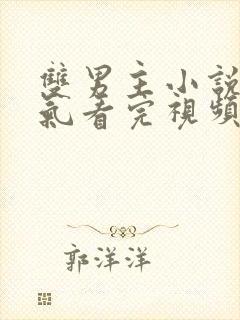 雙男主小說
氣看完視頻
郭洋洋